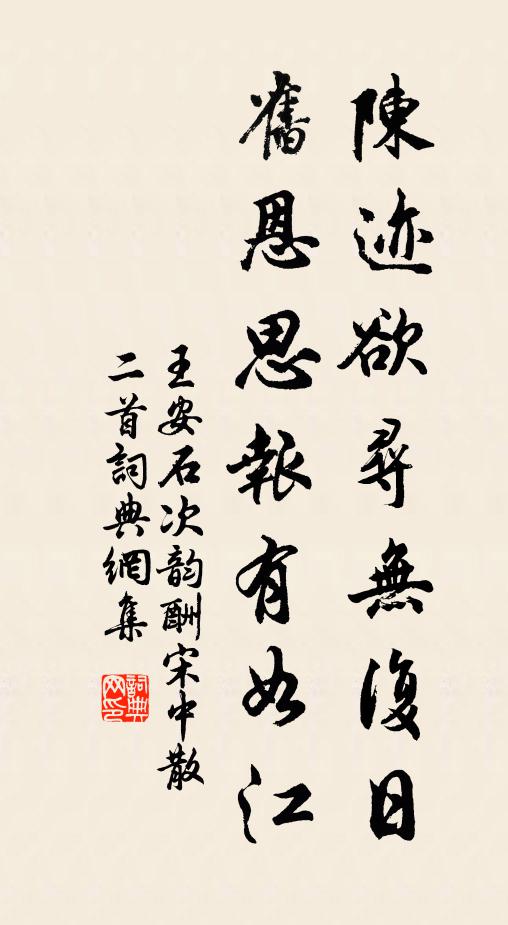 陳迹欲尋無復日
舊恩思報有如江
王安石次韵酬宋中散
二首詞典網集
詞典網印